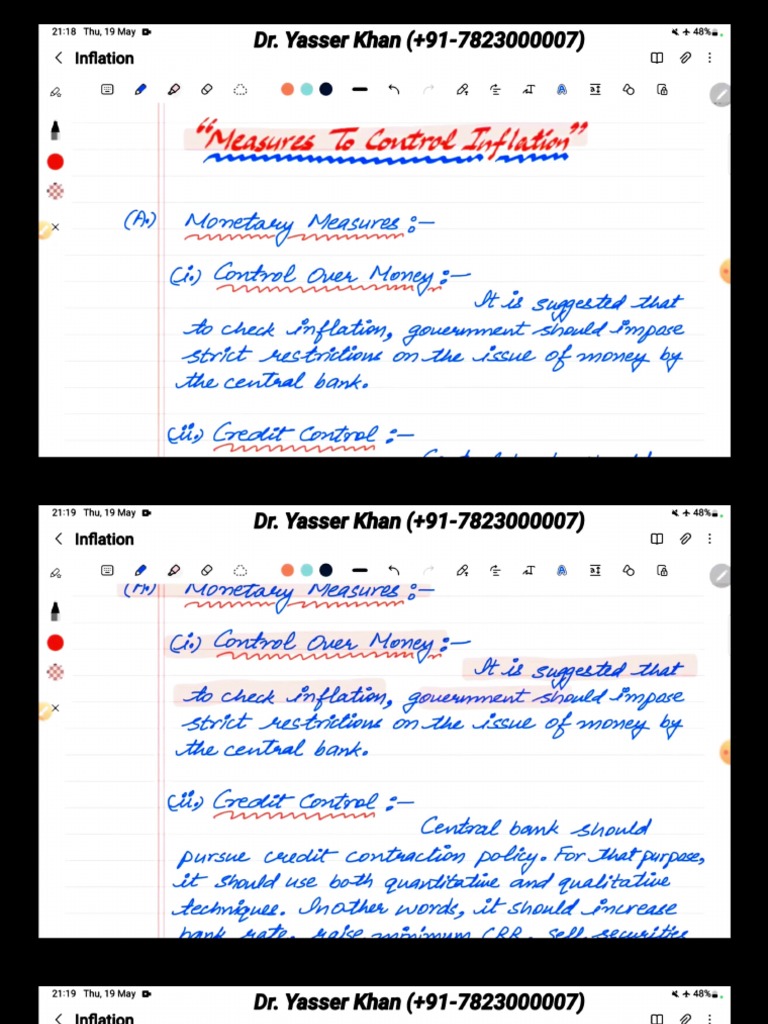 21:18 Thu, 19 May
Dr. Yasser Khan (+91-7823000007)
48%
Inflation
"Measures To Control Inflation"
(A.) Monetary Measures :-
(i.) Control Over Money :-
It is suggested that
to check inflation, government should impose
strict restrictions on the issue of money by
the central bank.
(ii.) Credit Control :-
21:19 Thu, 19 May
Dr. Yasser Khan (+91-7823000007)
48%
Inflation
(A.) Monetary Measures :-
(i.) Control Over Money :-
It is suggested that
to check inflation, government should impose
strict restrictions on the issue of money by
the central bank.
(ii.) Credit Control :-
Central bank should
pursue credit contraction policy. For that purpose,
it should use both quantitative and qualitative
techniques. In other words, it should increase
bank rate, raise minimum CRR, sell securities
21:19 Thu, 19 May
Dr. Yasser Khan (+91-7823000007)
48%
Inflation